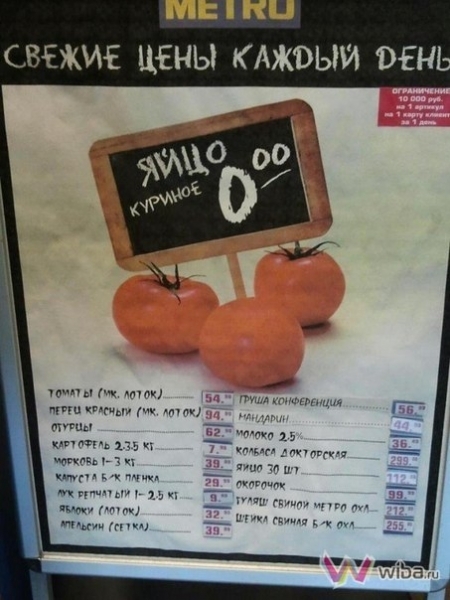 METRO
СВЕЖИЕ ЦЕНЫ КАЖДЫЙ DЕНЬ
ОГРАНИЧЕНИЕ
10 000 руб.
на 1 артикул
на 1 карту клиента
за 1 день
ЯЙЦО
КУРИНОЕ
0 00
ТОМАТЫ (МК. ЛОТОК) 54.
ПЕРЕЦ КРАСНЫЙ (МК. ЛОТОК) 94.
ОГУРЦЫ 62.
КАРТОФЕЛЬ 2.3.5 КГ 7.
МОРКОВЬ 1-3 КГ 39.
КАПУСТА Б/К ПЛЕНКА 29.
ЛУК РЕПЧАТЫЙ 1-2,5 КГ 9.
ЯБЛОКИ (ЛОТОК) 32.
АПЕЛЬСИН (СЕТКА) 39.
ГРУША КОНФЕРЕНЦИЯ 56.
МАНДАРИН 44.
МОЛОКО 2,5% 36.
КОЛБАСА ДОКТОРСКАЯ 299.
ЯЙЦО 30 ШТ. 112.
ОКОРОЧОК 99.
ГУЛЯШ СВИНОЙ МЕТРО ОХЛ 212.
ШЕЙКА СВИНАЯ Б/К ОХЛ 255.
wiba.ru